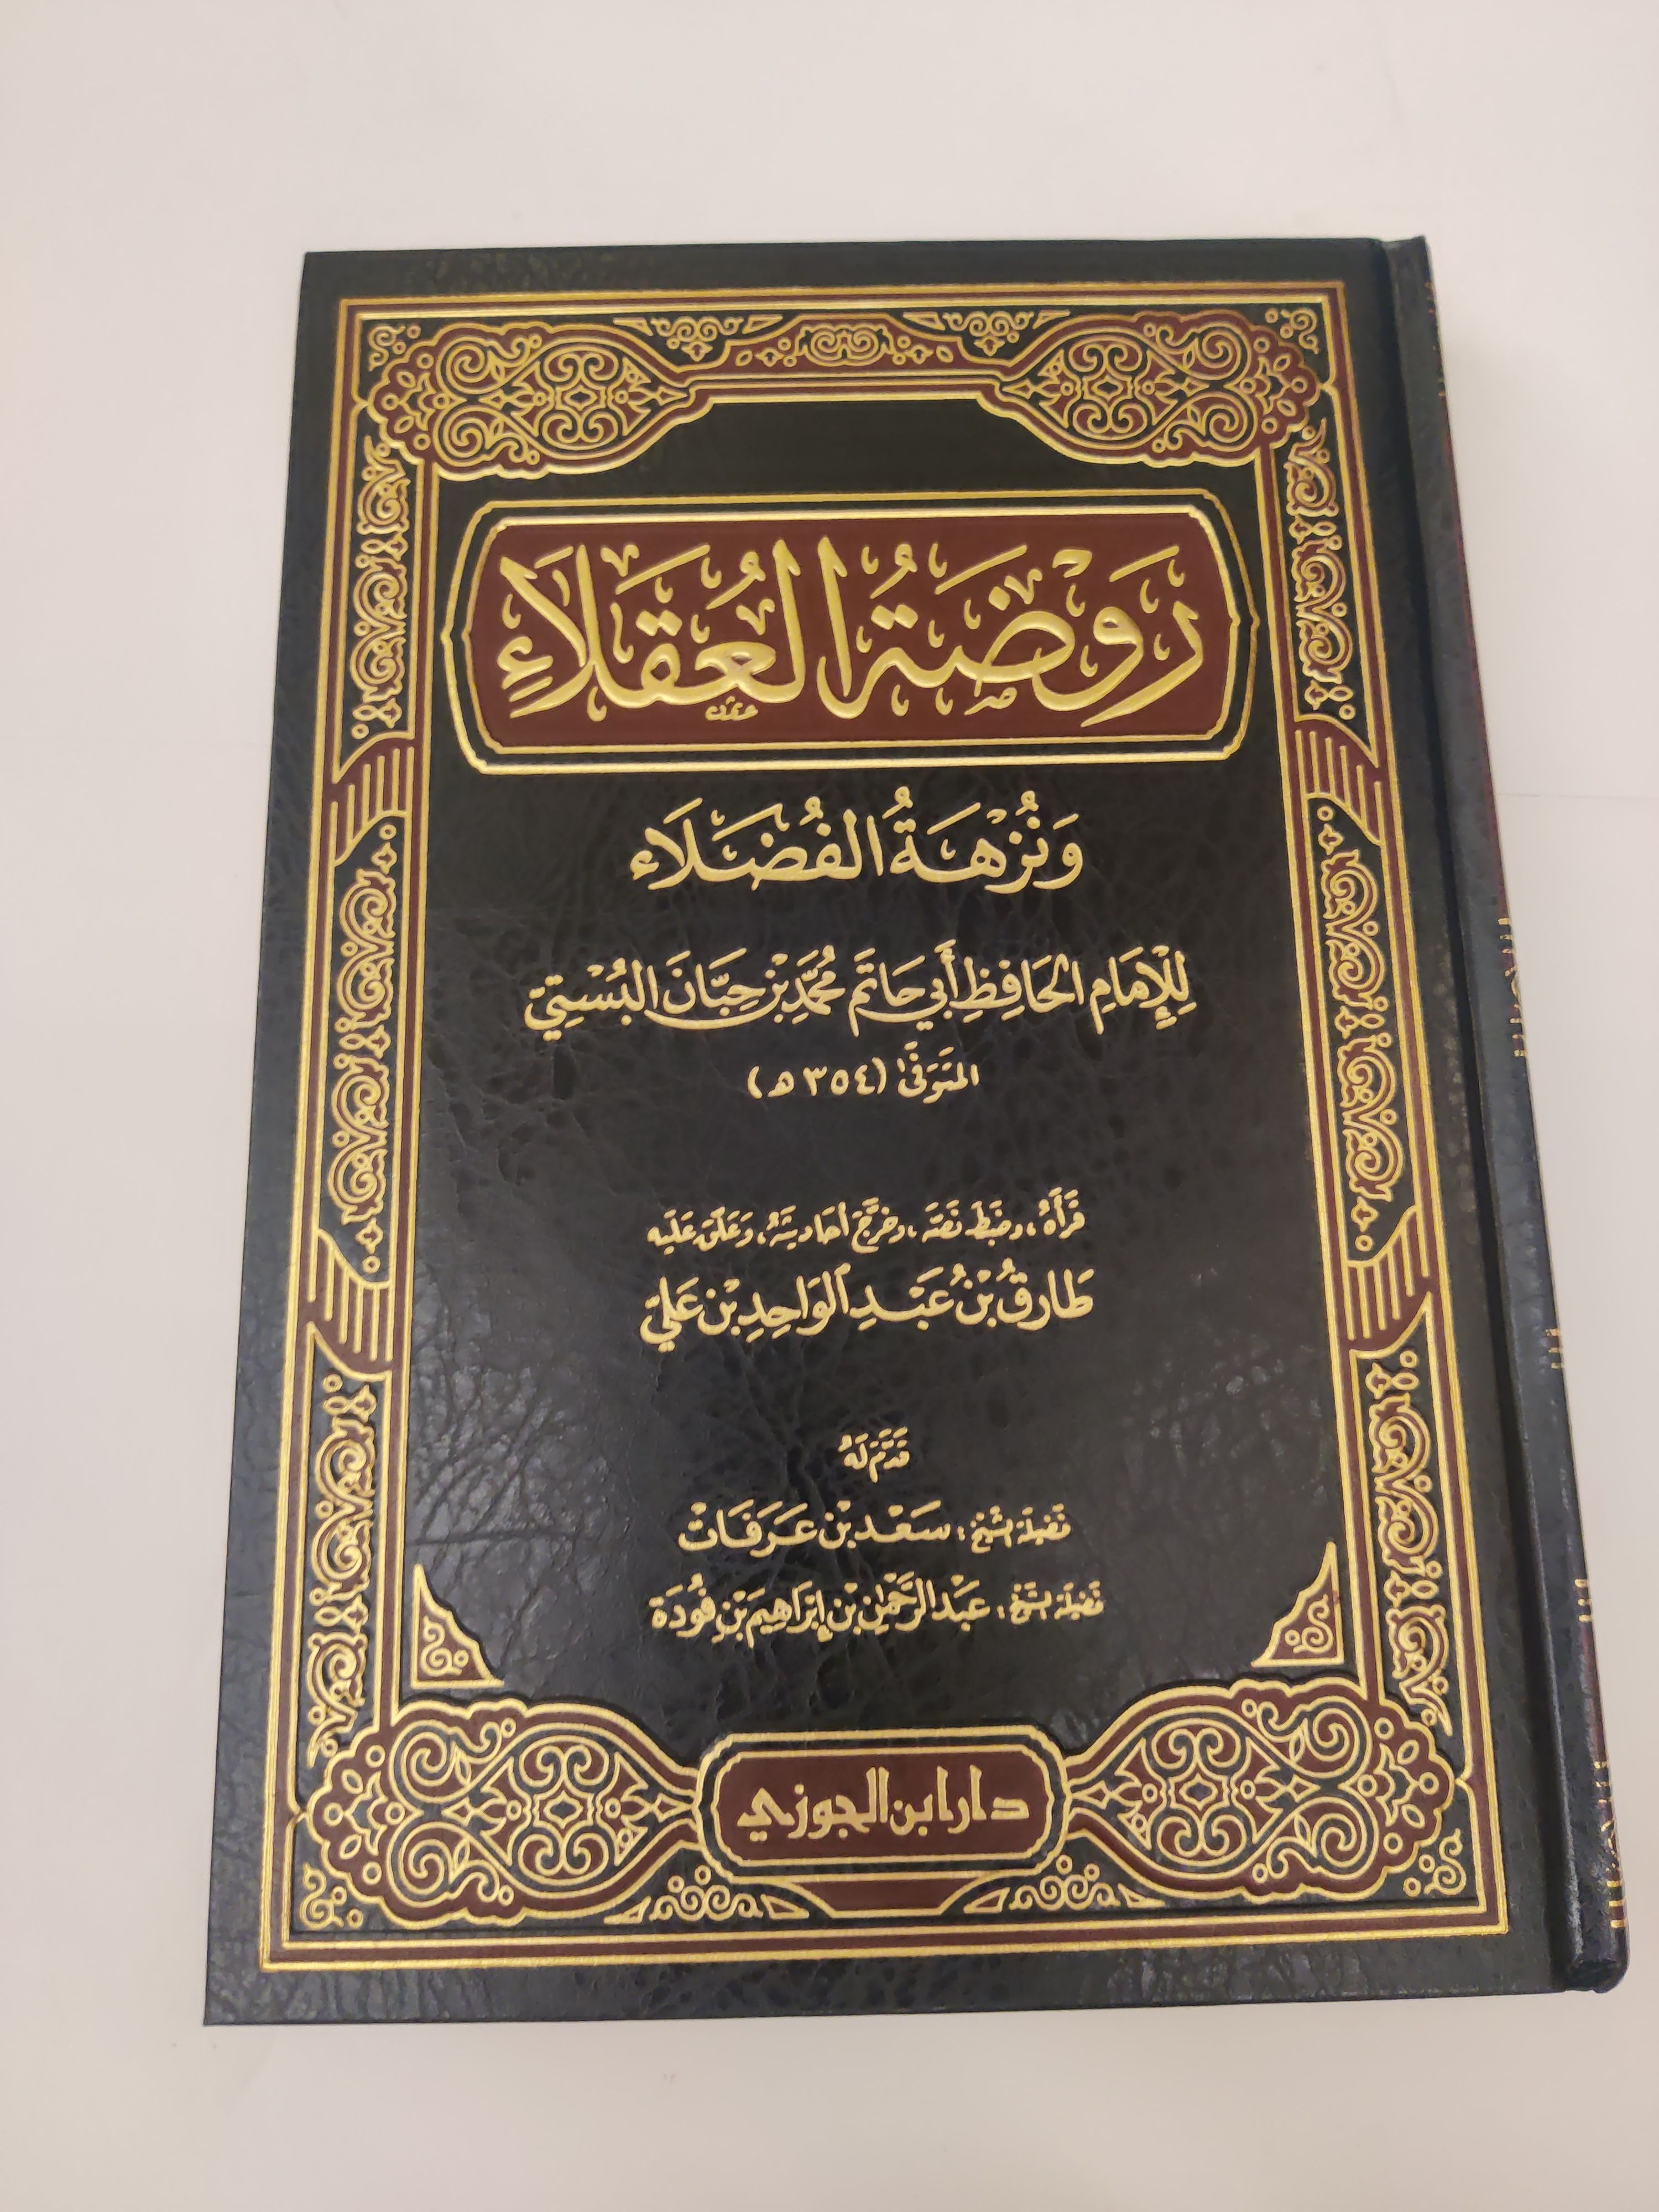 رَوْضَةُ العُقَلَاءِ
وَنُزْهَةُ الفُضَلَاء
لِلْإِمَامِ الحَافِظِ أَبِي حَاتَم مُحَمَّدِ بْنِ حِبَّانَ البُسْتِيّ
المتَوَفَّىٰ (٣٥٤ ه)
قَرَأَهُ، وضَبَطَ نَصَّهُ، وخَرَّجَ أحَاديثَهُ، وَعَلَّقَ عَلَيه
طَارقُ بْنُ عَبْدِ الوَاحِدِ بْنِ عَلِيّ
قَدَّمَ لَهُ
فَضِيلَة الشَّيْخ : سَعْد بْن عَرَفَات
فَضِيلَة الشَّيْخ : عَبْد الرَّحْمٰن بْن إبْرَاهِيمَ بْنِ فُودَة
دار ابن الجوزي